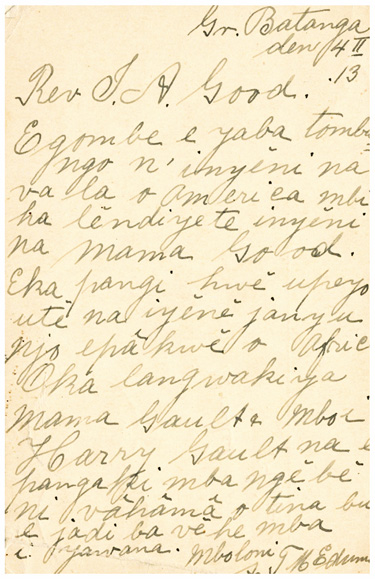 Gr. Batanga
den 14 II
.13
Rev I. A. Good.
Egombe e yaba tombo
ngo n' inyĕni na
va la o America mbi
ka lĕndiyĕtĕ inyĕni
na Mama Good.
Eka pangi kwĕ upeyo
utĕ na iyĕnĕ janyu
njo epâkwĕ o Afric
Oka langwakiya
Mama Gault & Mboi
Harry Gault na e
panga mba ngĕbĕ
ni vâhâmâ o tina bu
e jadi ba vĕhe mba
i yawana. Mboloni
M Edum